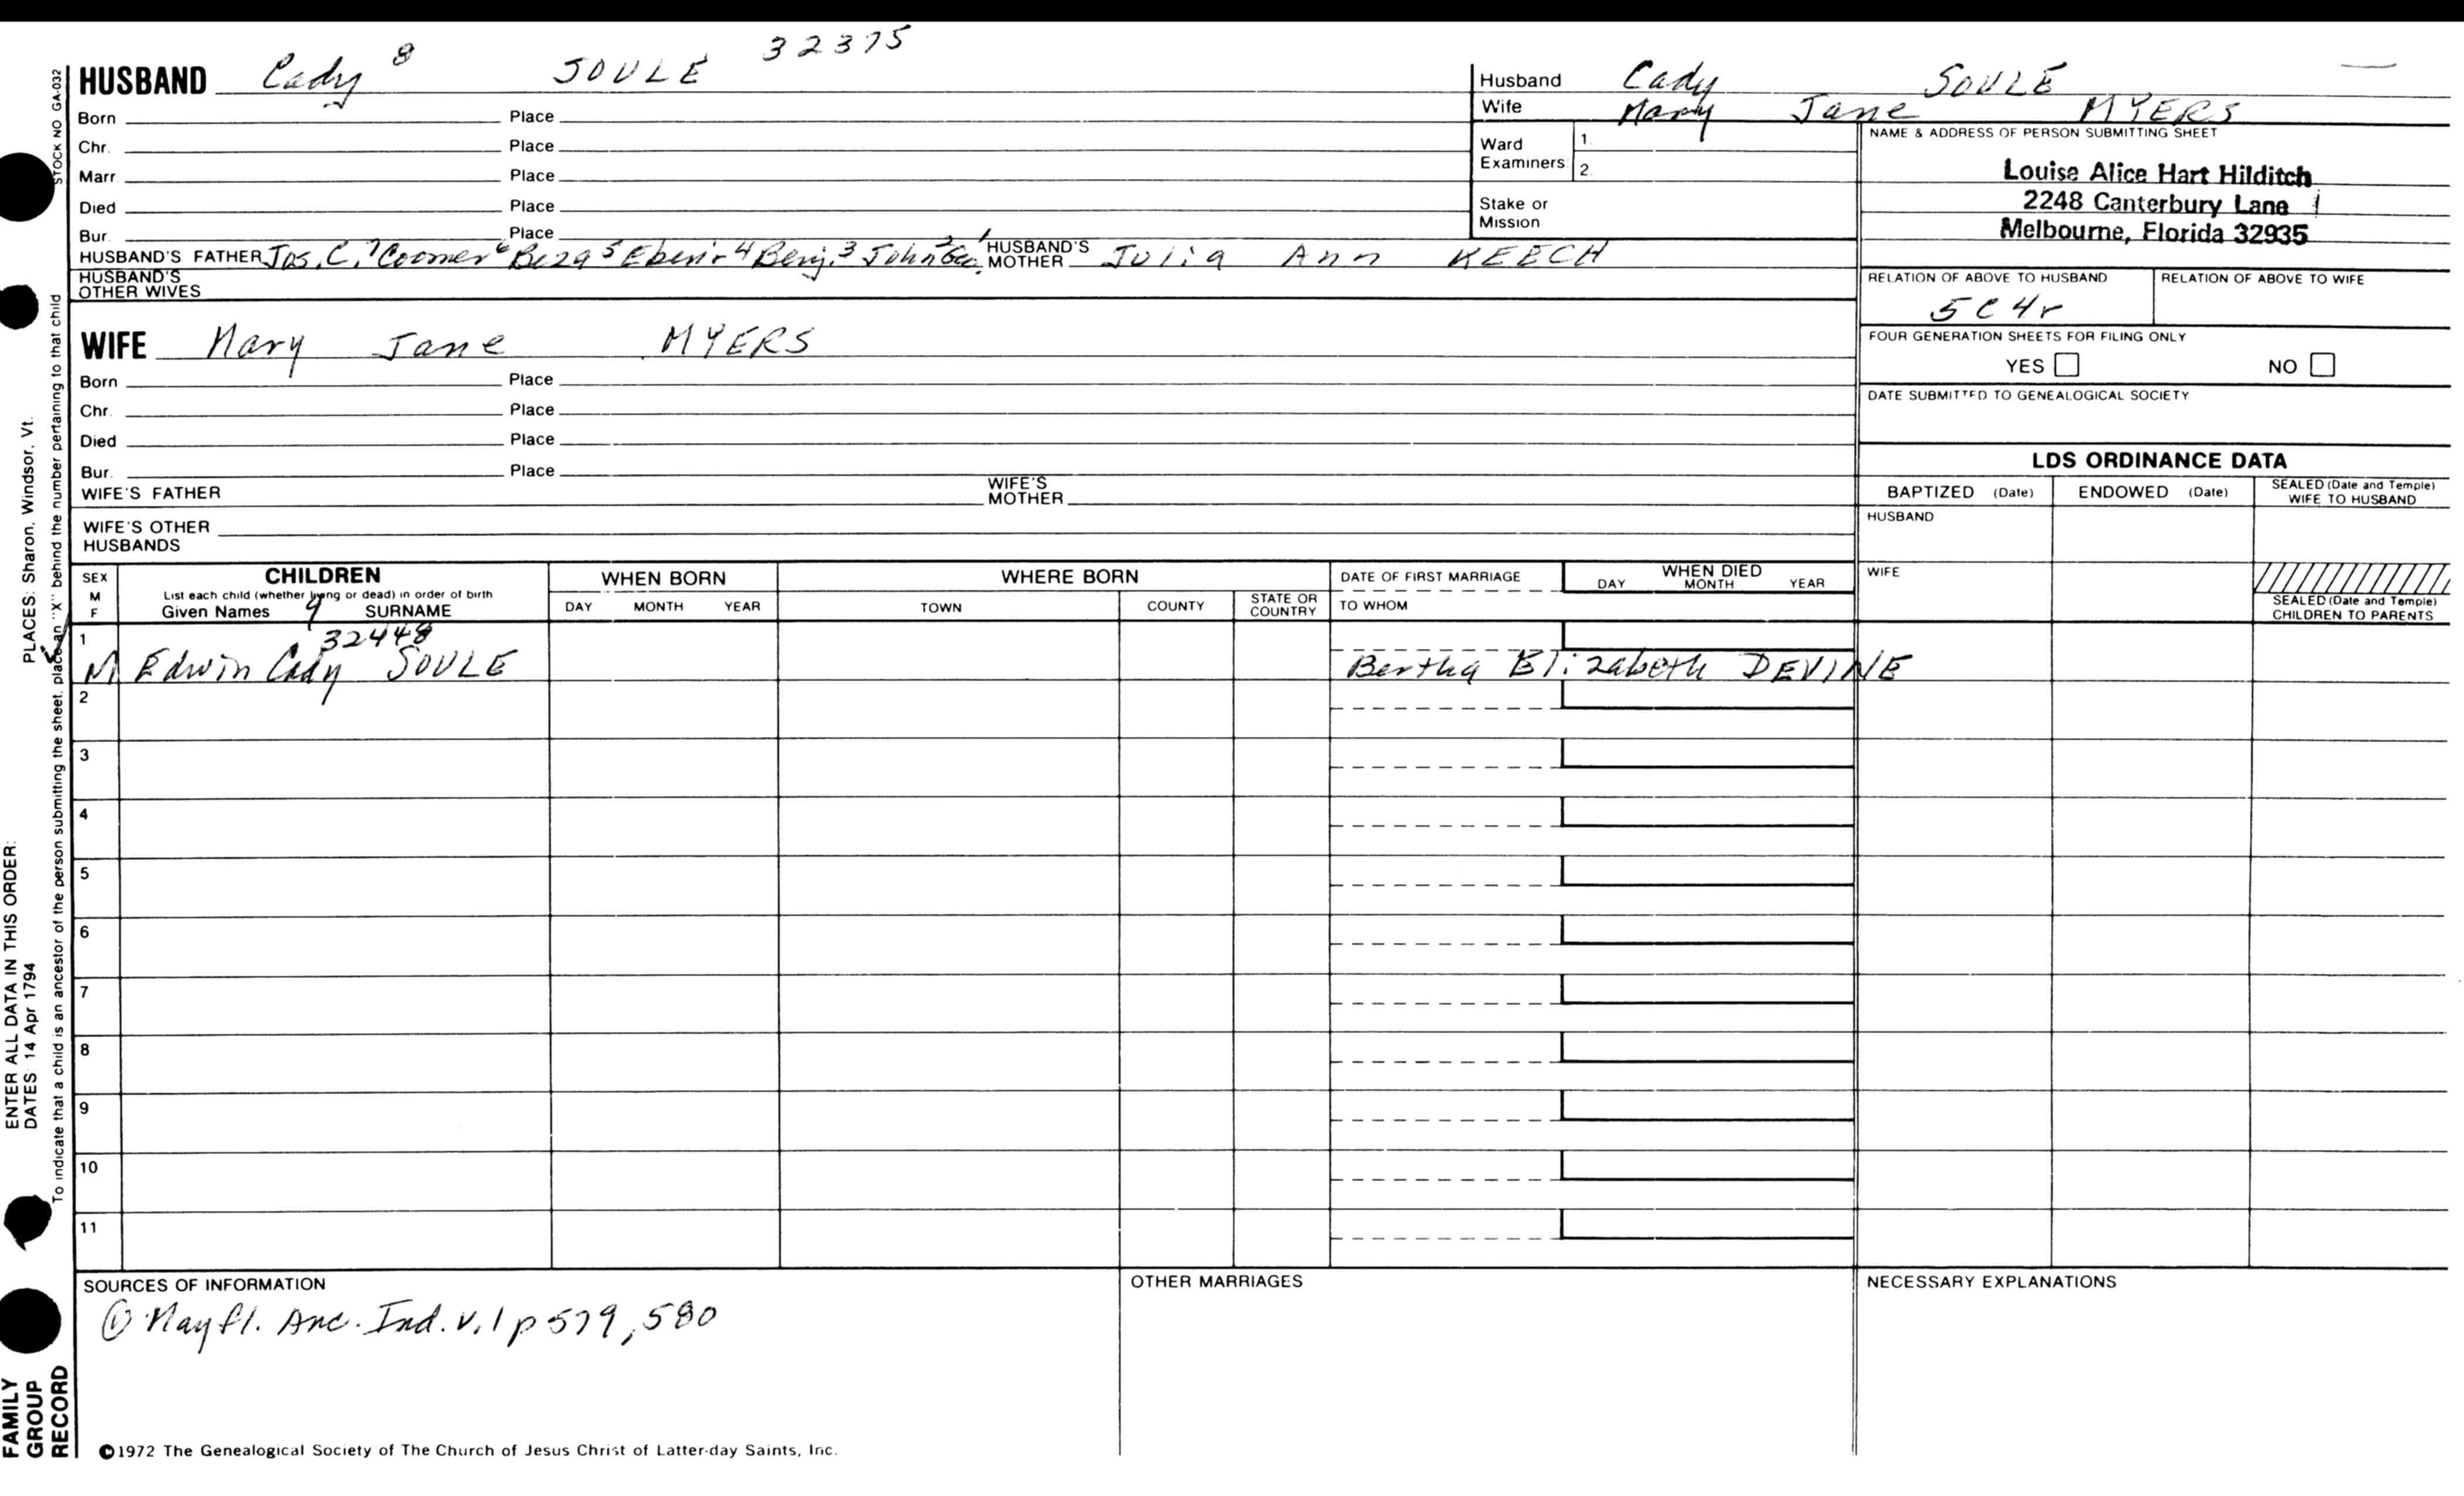 32375
HUSBAND Cady 8 SOULE
Born Place
Chr. Place
Marr. Place
Died Place
Bur. Place
HUSBAND'S FATHER Jos. C. 7 Coomer 6 Beza 5 Eben. 4 Benj. 3 John 2 Geo. 1 HUSBAND'S MOTHER Julia Ann KEECH
HUSBAND'S OTHER WIVES
WIFE Mary Jane MYERS
Born Place
Chr. Place
Died Place
Bur. Place
WIFE'S FATHER WIFE'S MOTHER
WIFE'S OTHER HUSBANDS
Husband Cady SOULE
Wife Mary Jane MYERS
Ward Examiners 1. 2.
Stake or Mission
NAME & ADDRESS OF PERSON SUBMITTING SHEET
Louise Alice Hart Hilditch
2248 Canterbury Lane
Melbourne, Florida 32935
RELATION OF ABOVE TO HUSBAND RELATION OF ABOVE TO WIFE
5C4r
FOUR GENERATION SHEETS FOR FILING ONLY
YES NO
DATE SUBMITTED TO GENEALOGICAL SOCIETY
LDS ORDINANCE DATA
BAPTIZED (Date) ENDOWED (Date) SEALED (Date and Temple) WIFE TO HUSBAND
HUSBAND
WIFE
SEALED (Date and Temple) CHILDREN TO PARENTS
SEX M F
CHILDREN
List each child (whether living or dead) in order of birth
Given Names 9 SURNAME
WHEN BORN
DAY MONTH YEAR
WHERE BORN
TOWN COUNTY STATE OR COUNTRY
DATE OF FIRST MARRIAGE
TO WHOM
WHEN DIED
DAY MONTH YEAR
1 32448
M Edwin Cady SOULE Bertha Elizabeth DEVINE
2
3
4
5
6
7
8
9
10
11
SOURCES OF INFORMATION
① Mayfl. Anc. Ind. v.1 p 579, 580
OTHER MARRIAGES
NECESSARY EXPLANATIONS
©1972 The Genealogical Society of The Church of Jesus Christ of Latter-day Saints, Inc.
STOCK NO GA-032
To indicate that a child is an ancestor of the person submitting the sheet, place an "X" behind the number pertaining to that child
PLACES: Sharon, Windsor, Vt.
ENTER ALL DATA IN THIS ORDER:
DATES: 14 Apr 1794
FAMILY
GROUP
RECORD